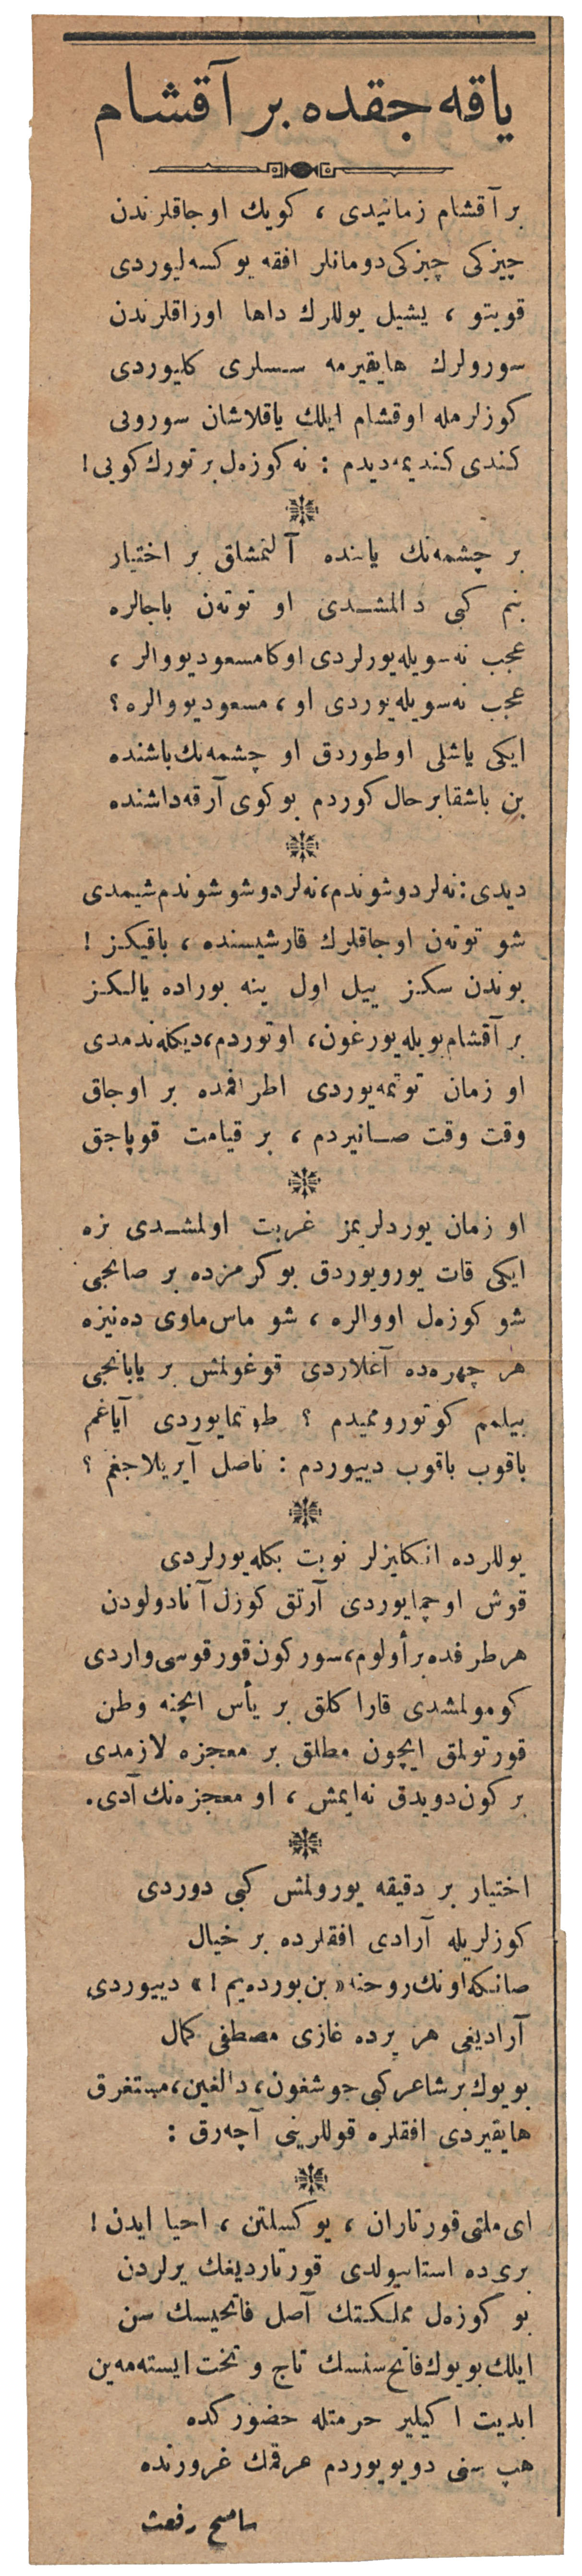 یاقه جقده بر آقشام
بر آقشام زمانیدی ، كویك اوجاقلرندن
چیزكی چیزكی دومانلر افقه یوكسه‌لیوردی
قویتو ، یشیل یوللرك داها اوزاقلرندن
سورولرك هایقیرمه سسلری كلیوردی
كوزلرمله اوقشام ایلك یاقلاشان سورویی
كندی كندیمه دیدم : نه كوزه‌ل بر تورك كویی !
بر چشمه‌نك یاننده آلنمشاق بر اختیار
بنم كبی دالمشدی او توته‌ن باجالره
عجب نه سویله‌یورلردی اوكا مسعود یووالر ،
عجب نه سویله‌یوردی او ، مسعود یووالره ؟
ایكی یاشلی اوطوردق او چشمه‌نك باشنده
بن باشقا بر حال كوردم بو كوی آرقه‌داشنده
دیدی : نه‌لر دوشوندم ، نه‌لر دوشوندم شیمدی
شو توته‌ن اوجاقلرك قارشیسنده ، باقیكز !
بوندن سكز ییل اول ینه بوراده یالكز
بر آقشام بویله یورغون ، اوتوردم ، دیكله‌ندمدی
او زمان توتمه‌یوردی اطرافمده بر اوجاق
وقت وقت صانیردم ، بر قیامت قوپاجق
او زمان یوردلریمز غربت اولمشدی بزه
ایكی قات یورویوردق بوكرمزده بر صانجی
شو كوزه‌ل اووالره ، شو ماس‌ماوی ده‌نیزه
هر چهره‌ده آغلاردی قوغولمش بر یابانجی
بیلمم كوتوروممیدم ؟ طوتمایوردی آیاغم
باقوب باقوب دییوردم : ناصل آیریلاجغم ؟
یوللرده انكلیزلر نوبت بكله‌یورلردی
قوش اوچمایوردی آرتق كوزل آنادولودن
هر طرفده بر أولوم ، سوركون قورقوسی واردی
كومولمشدی قاراكلق بر یأس ایچنه وطن
قورتولمق ایچون مطلق بر معجزه لازمدی
بر كون دویدق نه‌ایمش ، او معجزه‌نك آدی .
اختیار بر دقیقه یورولمش كبی دوردی
كوزلریله آرادی افقلرده بر خیال
صانكه اونك روحنه « بن بورده‌یم ! » دییوردی
آرادیغی هر یرده غازی مصطفی كمال
بویوك بر شاعر كبی جوشغون ، دالغین ، مستغرق
هایقیردی افقلره قوللرینی آچه‌رق :
ای ملتی قورتاران ، یوكسلتن ، احیا ایدن !
بزی ده استانبولدی قورتاردیغك یرلردن
بو كوزه‌ل مملكتك آصل فاتحیسك سن
ایلك بویوك فاتح سنسك تاج و تخت ایسته‌مه‌ین
ابدیت اكیلیر حرمتله حضوركده
هپ سنی دویویوردم عرقمك غرورنده
سامح رفعت